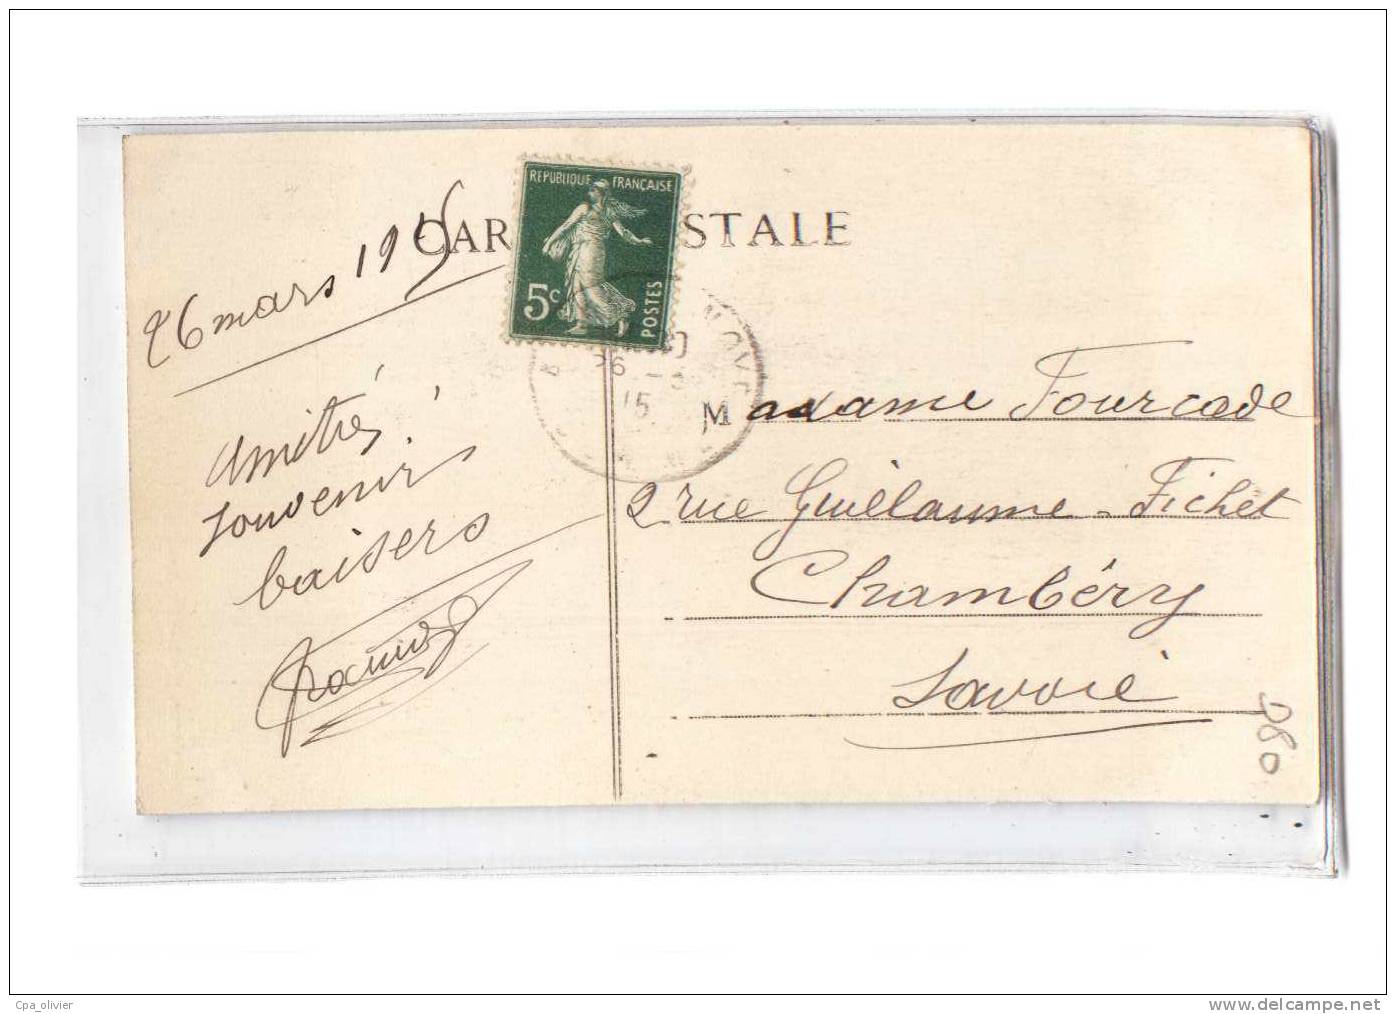 CARTE POSTALE
REPUBLIQUE FRANÇAISE
5c
POSTES
26 mars 1915
Amitiés!
souvenir
baisers
26 - 3
15
Madame Fourcade
2 rue Guillaume-Fichet
Chambéry
Savoie
D80
Cpa_olivier
www.delcampe.net